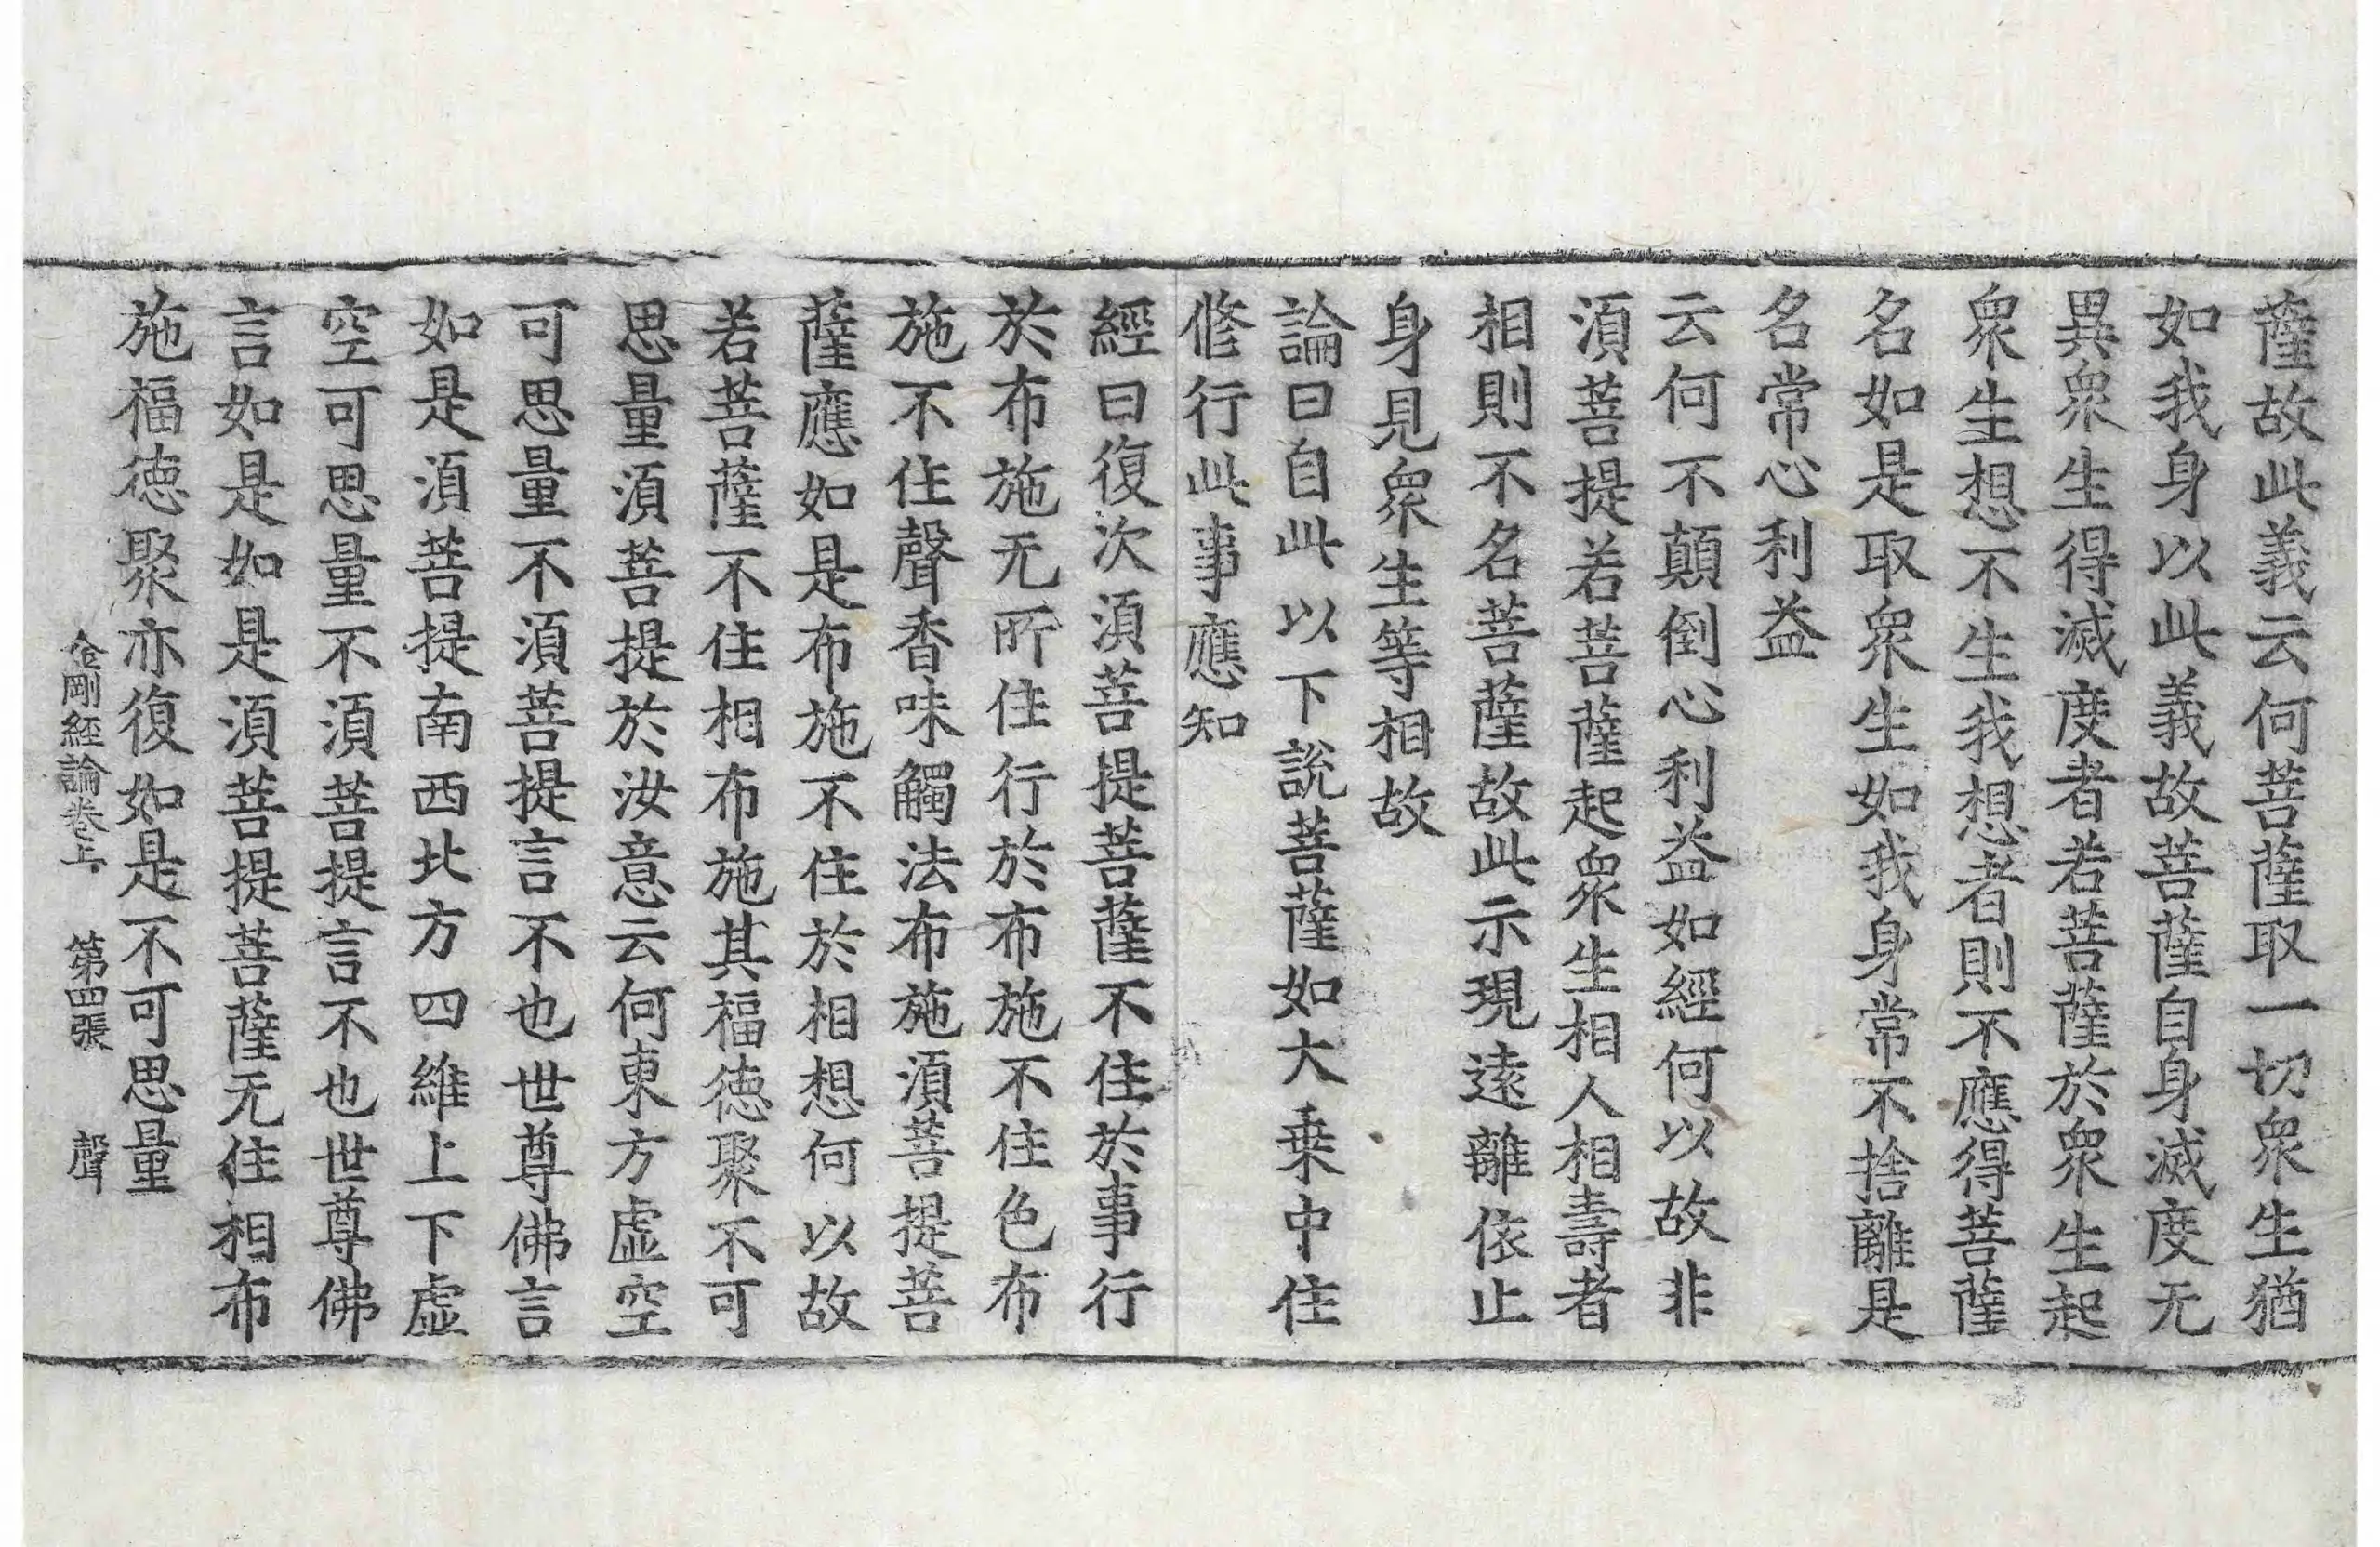 薩故此義云何菩薩取一切衆生猶
如我身以此義故菩薩自身滅度无
異衆生得滅度者若菩薩於衆生起
衆生想不生我想者則不應得菩薩
名如是取衆生如我身常不捨離是
名常心利益
云何不顛倒心利益如經何以故非
須菩提若菩薩起衆生相人相壽者
相則不名菩薩故此示現遠離依止
身見衆生等相故
論曰自此以下說菩薩如大乗中住
修行此事應知
經曰復次須菩提菩薩不住於事行
於布施无所住行於布施不住色布
施不住聲香味觸法布施須菩提菩
薩應如是布施不住於相想何以故
若菩薩不住相布施其福徳聚不可
思量須菩提於汝意云何東方虛空
可思量不須菩提言不也世尊佛言
如是須菩提南西北方四維上下虛
空可思量不須菩提言不也世尊佛
言如是如是須菩提菩薩无住相布
施福徳聚亦復如是不可思量
金剛經論卷上 第四張 聲